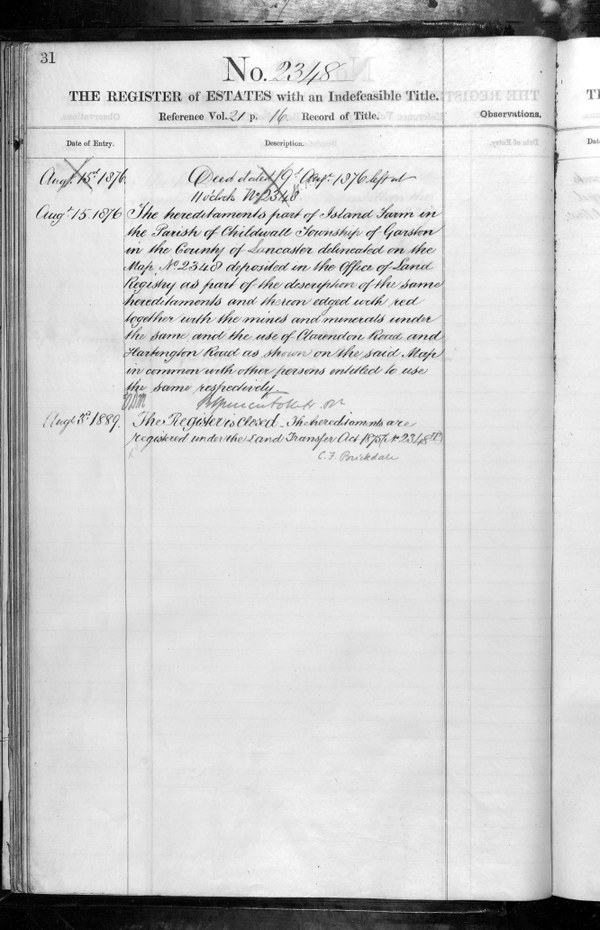 31
No. 2348
THE REGISTER of ESTATES with an Indefeasible Title.
Reference Vol. 21 p. 16 Record of Title.
Observations.
Date of Entry.
Description.
Augt. 15th 1876.
Deed dated 9th Augt. 1876 left at
11 o'clock No 2348
Augt 15 1876
The hereditaments part of Island Farm in
the Parish of Childwall Township of Garston
in the County of Lancaster delineated on the
Map No 2348 deposited in the Office of Land
Registry as part of the description of the same
hereditaments and thereon edged with red
together with the mines and minerals under
the same and the use of Clarendon Road and
Hartington Road as shown on the said Map
in common with other persons entitled to use
the same respectively.
Augt 3d 1889.
The Register is closed. The hereditaments are
registered under the Land Transfer Act 1875
C. F. Brickdale